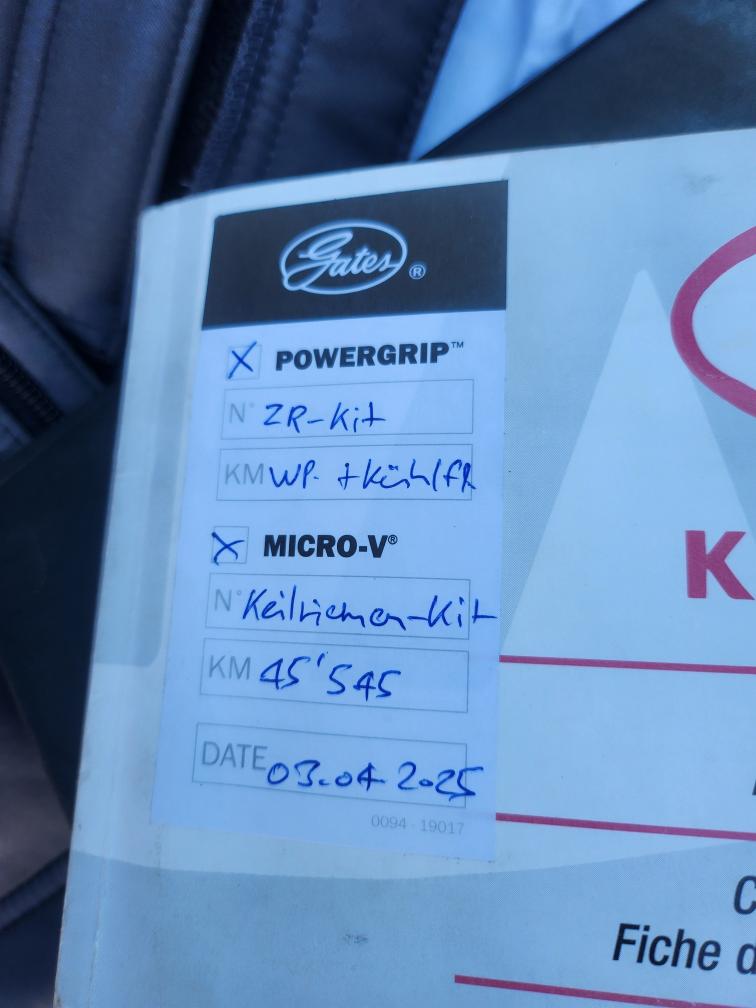 Gates®
X POWERGRIP™
N° ZR-Kit
KM WP. + Kühlfl.
X MICRO-V®
N° Keilriemen-Kit
KM 45'545
DATE 03.04 2025
0094 - 19017
K
C
Fiche d